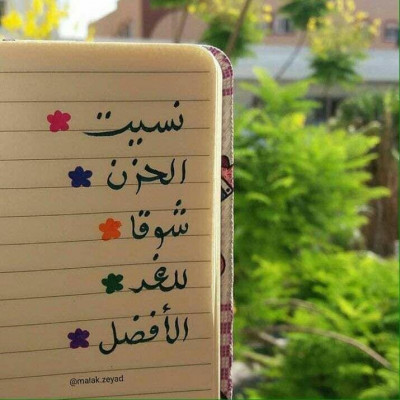 نسيت
الحزن
شوقا
للغد
الأفضل
@matak.zeyad